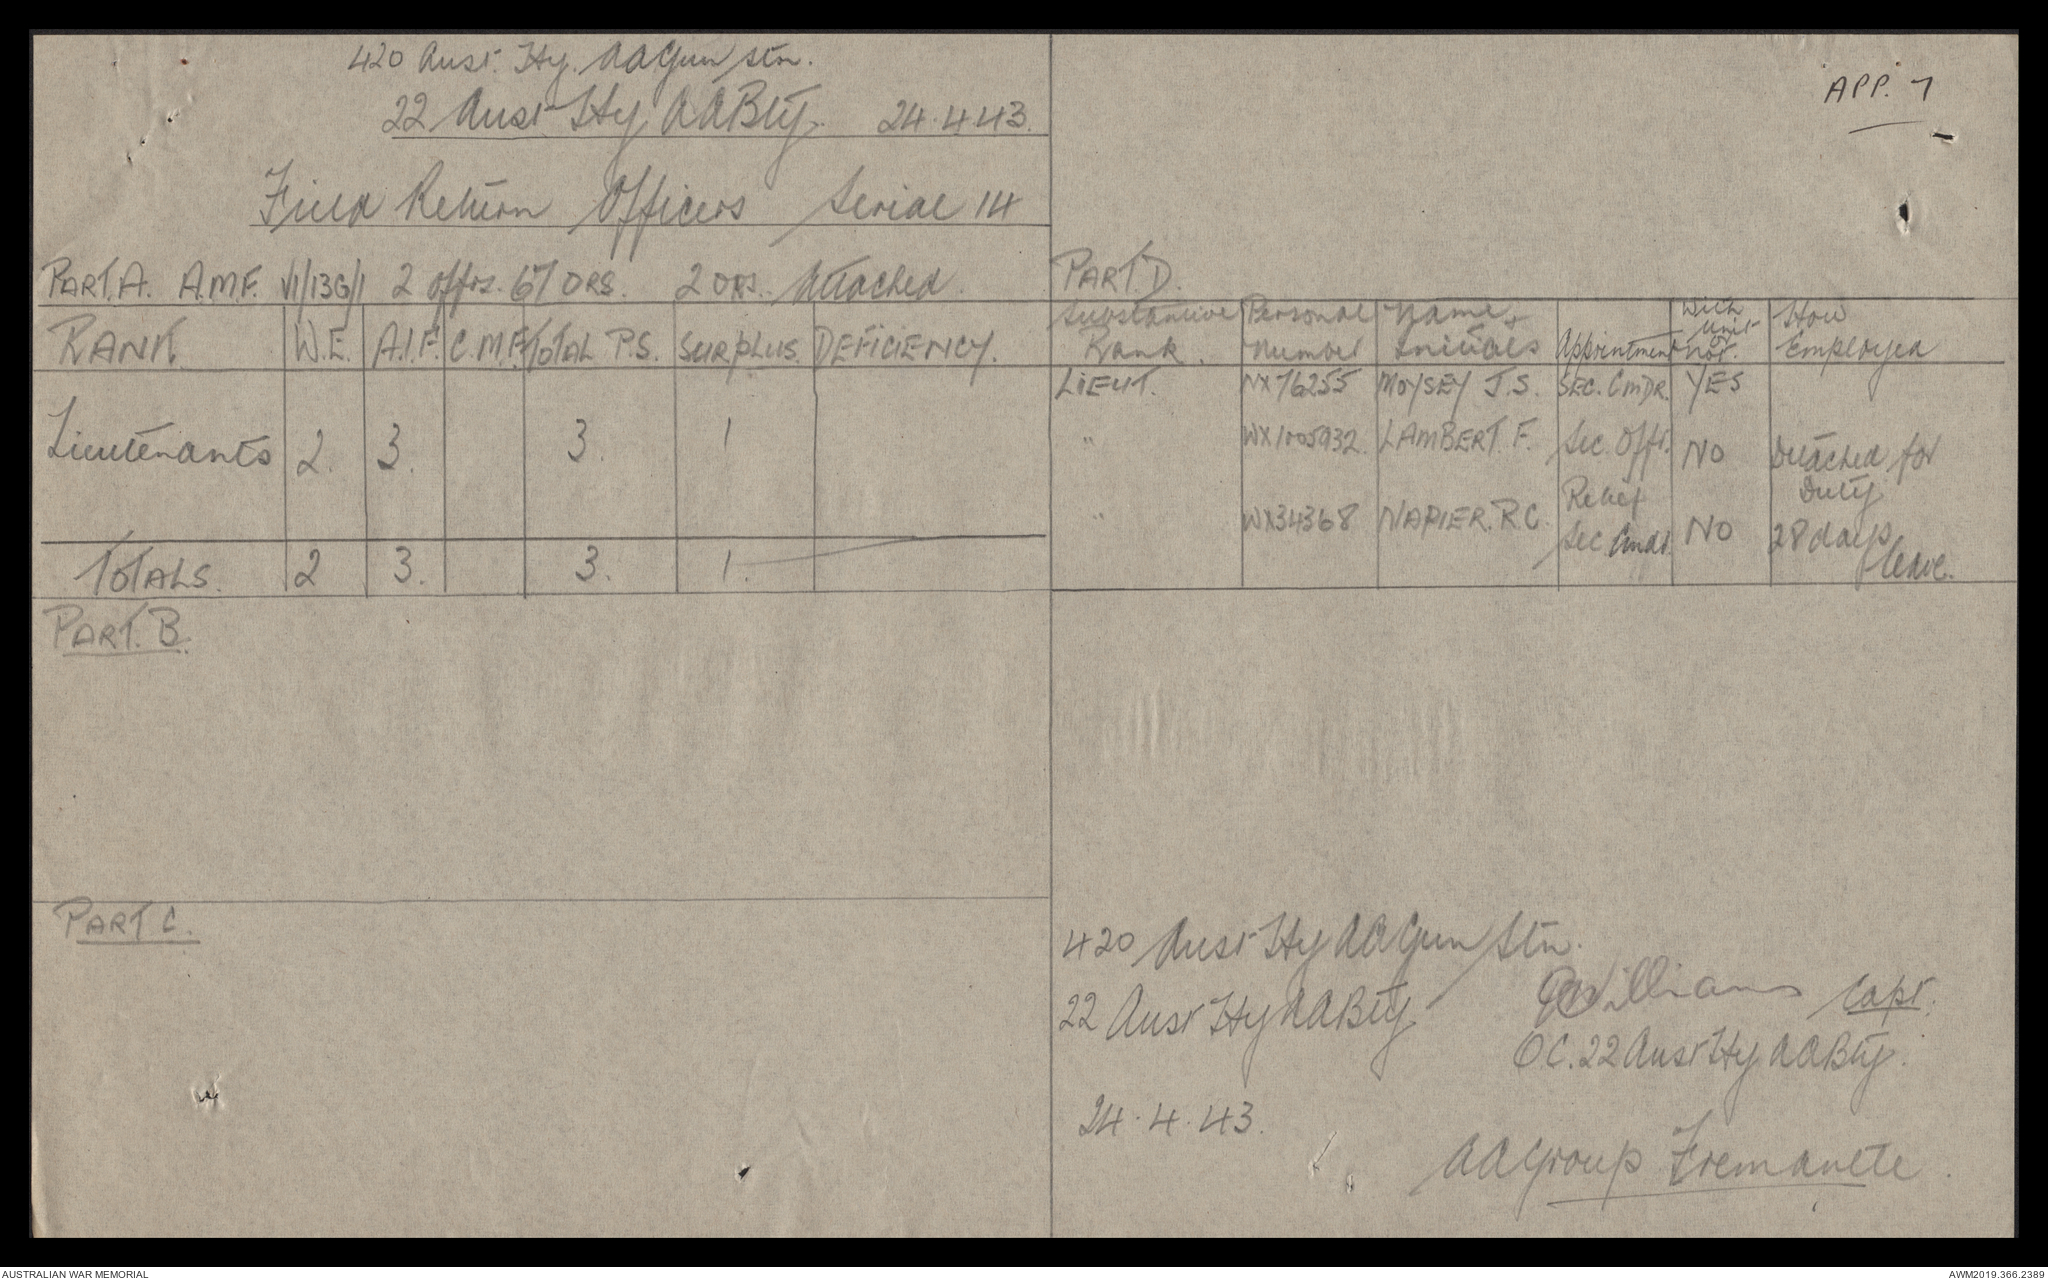 420 Aust. Hy. AA Gun Stn.
22 Aust Hy AA Bty. 24.4.43.
Field Return Officers Serial 14
PART. A. A.M.F. VI/13G/1 2 offrs. 67 ORS. 2 ORS. Attached.
RANK W.E. A.I.F. C.M.F. TOTAL P.S. SURPLUS. DEFICIENCY.
Lieutenants 2. 3. 3. 1
TOTALS. 2 3. 3. 1.
PART. B.
PART C.
APP. 7
PART. D.
Substantive Rank. Personal Number Name & Initials Appointment With Unit or not. How Employed
LIEUT. NX76255 MOYSEY J.S. SEC. CMDR. YES
" LAMBERT. F. Sec. Offr. NO Detached for Duty
" WX34368 NAPIER. R.C. Relief Sec Cmdr. NO 28 days leave.
420 Aust Hy AA Gun Stn.
22 Aust Hy AA Bty
Williams Capt.
OC. 22 Aust Hy AA Bty.
24.4.43.
AA Group Fremantle.
AUSTRALIAN WAR MEMORIAL
AWM2019.366.2389